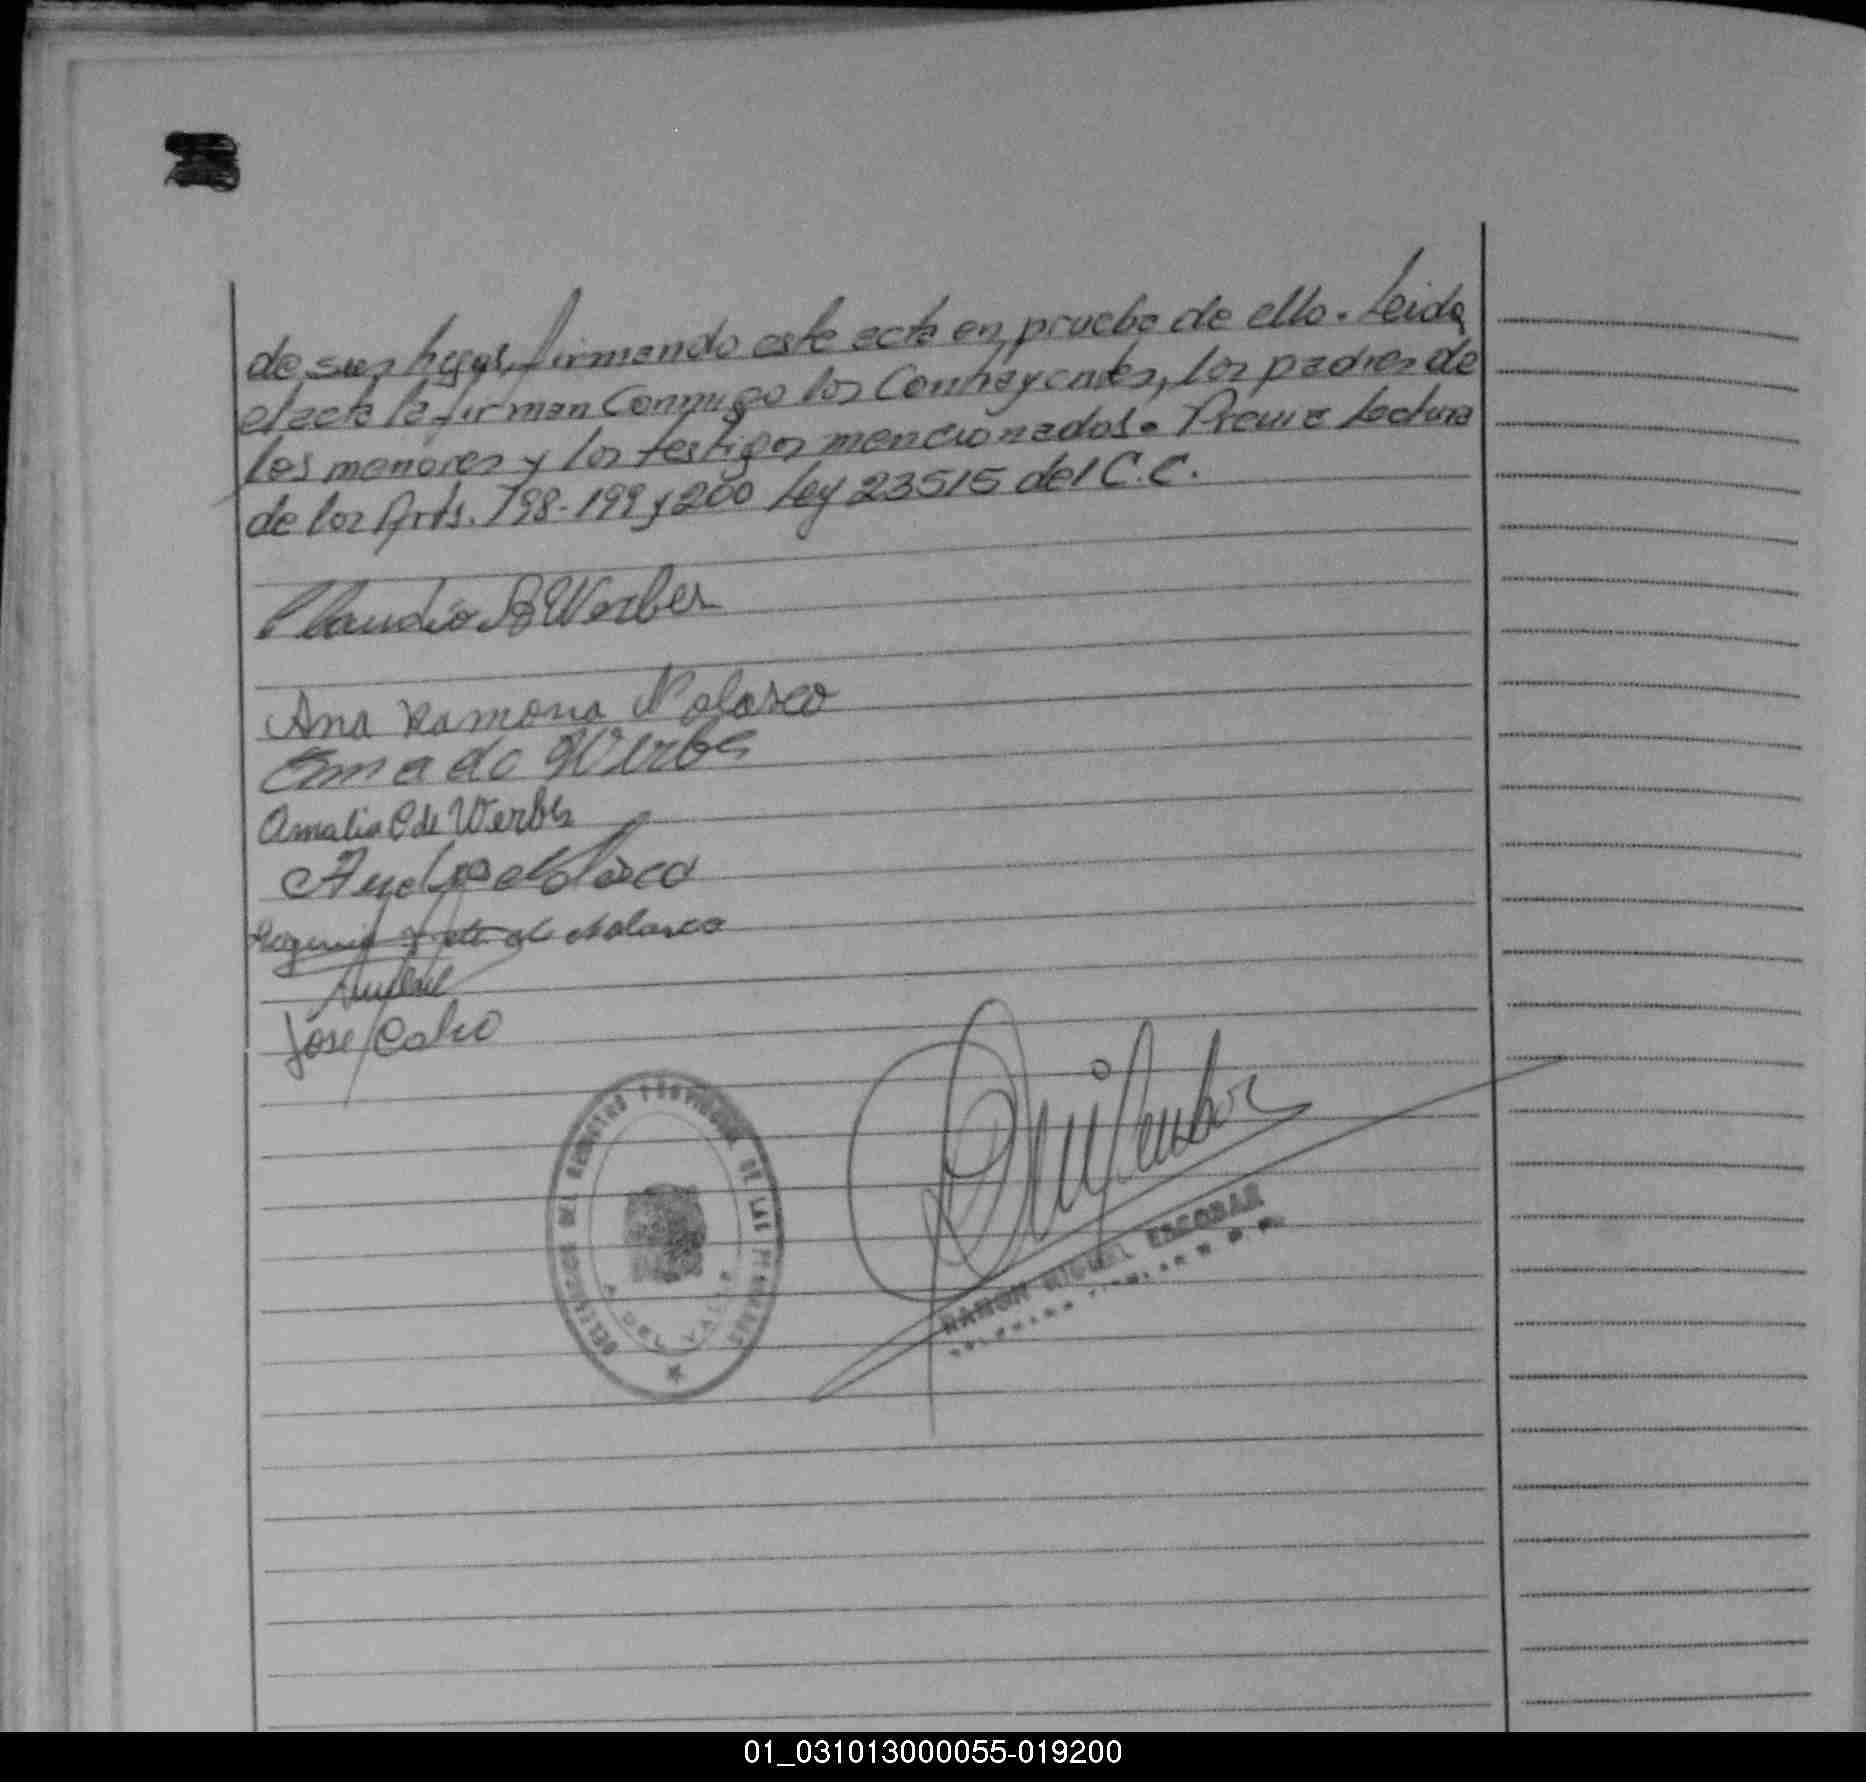 de sus hijos, firmando este acta en prueba de ello. Leida
el acta la firman conmigo los Contrayentes, los padres de
los menores y los testigos mencionados. Previa Lectura
de los Arts. 198-199 y 200 Ley 23515 del C.C.
Claudio A Werbes
Ana Ramona Nolasco
Amado Werbes
Amalia C de Werbes
Nolasco
de Nolasco
Jose Calvo
DELEGACION DEL REGISTRO PROVINCIAL DE LAS PERSONAS
DEL VALLE
RAMON MIGUEL ESCOBAR
01_031013000055-019200